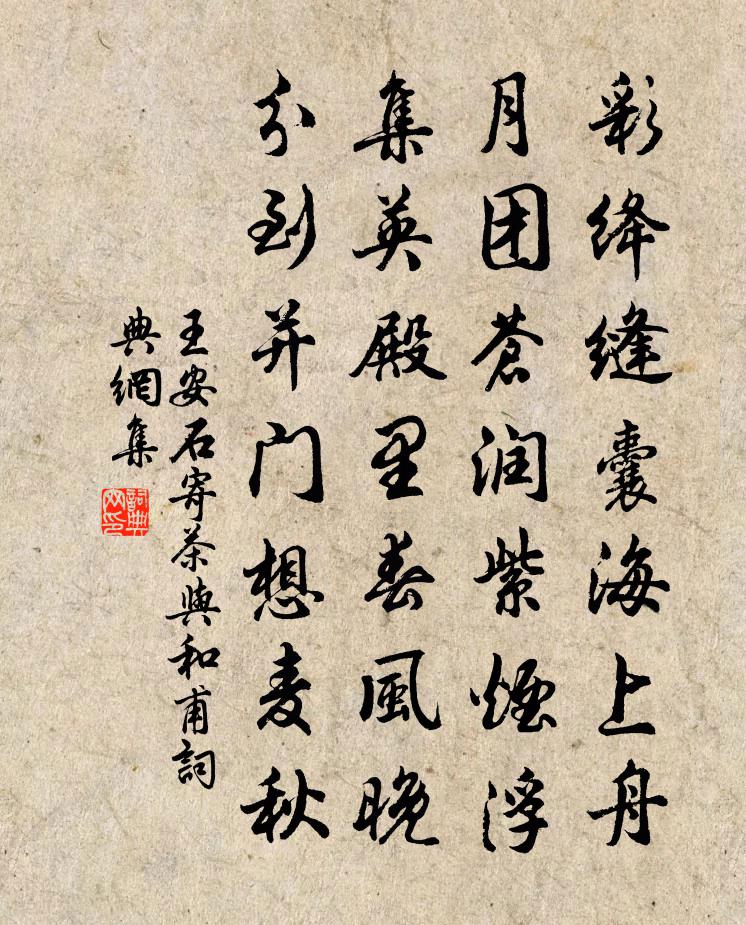 彩绛缝囊海上舟
月团苍润紫烟浮
集英殿里春風晚
分到并门想麦秋
王安石寄茶與和甫詞
典網集
詞典
网印